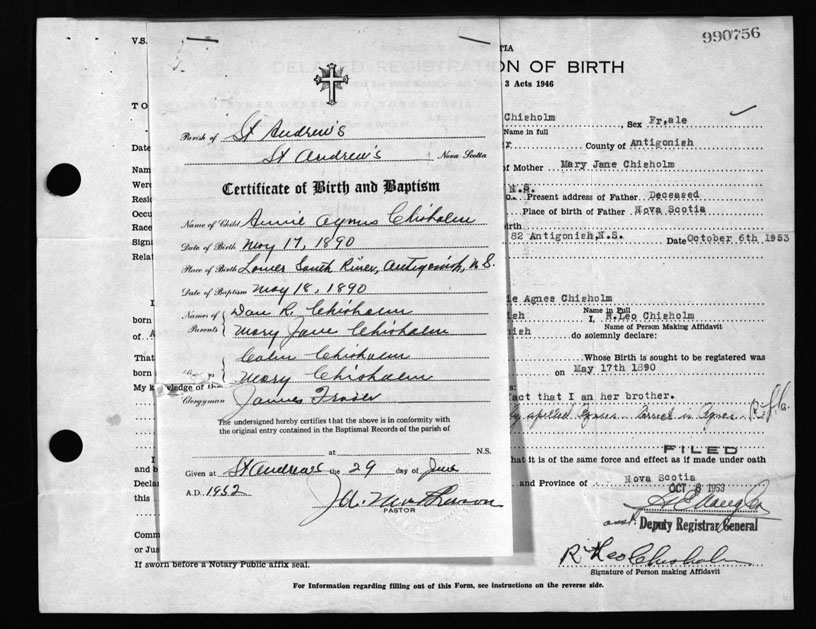 V.S.
TIA
990756
ON OF BIRTH
3 Acts 1946
TO
Date
Nam
Were
Resid
Occu
Race
Signa
Relat
I
born
of A
That
born
My knowledge of this
I
and b
Declar
this
Comm
or Jus
If sworn before a Notary Public affix seal.
Parish of St Andrew's
St Andrew's Nova Scotia
Certificate of Birth and Baptism
Name of Child Annie Agnus Chisholm
Date of Birth May 17, 1890
Place of Birth Lower South River, Antigonish, N.S.
Date of Baptism May 18, 1890
Names of Parents Dan R. Chisholm
Mary Jane Chisholm
Colin Chisholm
Mary Chisholm
Clergyman James Fraser
The undersigned hereby certifies that the above is in conformity with
the original entry contained in the Baptismal Records of the parish of
at N.S.
Given at St Andrew's the 29 day of June
A.D. 1952
PASTOR
Chisholm Sex Fr,ale
Name in full
r County of Antigonish
of Mother Mary Jane Chisholm
N.S.
Present address of Father Deceased
Place of birth of Father Nova Scotia
irth
82 Antigonish,N.S. Date October 6th 1953
ie Agnes Chisholm
Name in Full
ish I, R.Leo Chisholm
Name of Person Making Affidavit
nish do solemnly declare:
Whose Birth is sought to be registered was
on May 17th 1890
s:
fact that I an her brother.
ly spelled Agnus. Correct is Agnes R.L.C.
FILED
that it is of the same force and effect as if made under oath
and Province of Nova Scotia
OCT 8 1953
Deputy Registrar General
R. Leo Chisholm
Signature of Person making Affidavit
For Information regarding filling out of this Form, see instructions on the reverse side.